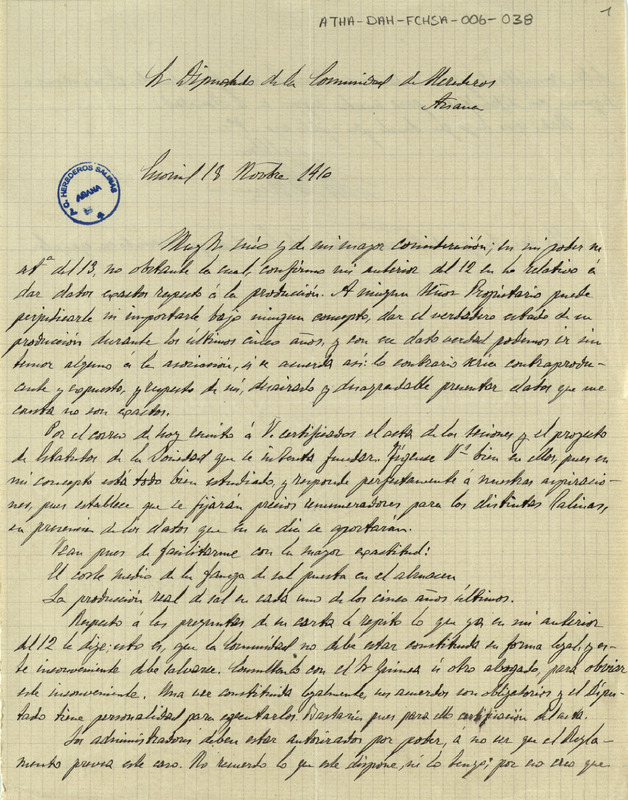 ATHA-DAH-FCHSA-006-038
1
Sr Diputado de la Comunidad de Herederos
Anana
T. G. HEREDEROS SALINAS
ANANA
18 Novbre 1910
Muy Sr mio y de mi mayor consideración; en mi poder su
atta del 13, no obstante la cual, confirmo mi anterior del 12 en lo relativo á
dar datos exactos respecto á la producción. A ningun Señor Propietario puede
perjudicarle ni importarle bajo ningun concepto, dar el verdadero estado de su
producción durante los últimos cinco años, y con ese dato verdad podemos ir sin
temor alguno á la asociación, si se acuerda asi: lo contrario seria contraprodu-
cente y expuesto, y respecto de mi, desairado y desagradable presentar datos que me
consta no son exactos.
Por el correo de hoy remito á V. certificados el acta de las sesiones y el proyecto
de Estatutos de la Sociedad que se intenta fundar. Fijense Vs bien en ellos, pues en
mi concepto está todo bien estudiado, y responde perfectamente á nuestras aspiracio-
nes, pues establece que se fijarán precios remuneradores para las distintas Salinas,
en presencia de los datos que en su dia se aportaran.
Vean pues de facilitarme con la mayor exactitud:
El coste medio de la fanega de sal puesta en el almacen
La producción real de sal en cada uno de los cinco años últimos.
Respecto á las preguntas de su carta le repito lo que ya en mi anterior
del 12 le dije; esto es, que la Comunidad no debe estar constituida en forma legal, y es-
te inconveniente debe salvarse. Consultenlo con el Sr Guinea ú otro abogado para obviar
este inconveniente. Una vez constituida legalmente, sus acuerdos son obligatorios y el Dipu-
tado tiene personalidad para ejecutarlos. Bastaria pues para ello certificación del acta.
Los administradores deben estar autorizados por poder, á no ser que el Regla-
mento prevea este caso. No recuerdo lo que este dispone, ni lo tengo; por eso creo que